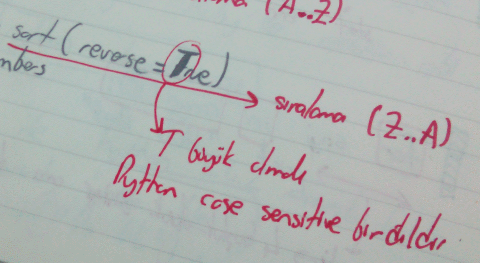 (A..Z)
sort (reverse = True)
mbers
sıralama (Z..A)
T büyük olmalı
Python case sensitive bir dildir